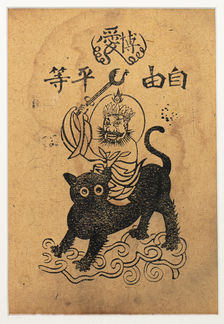 博愛
自由 平等